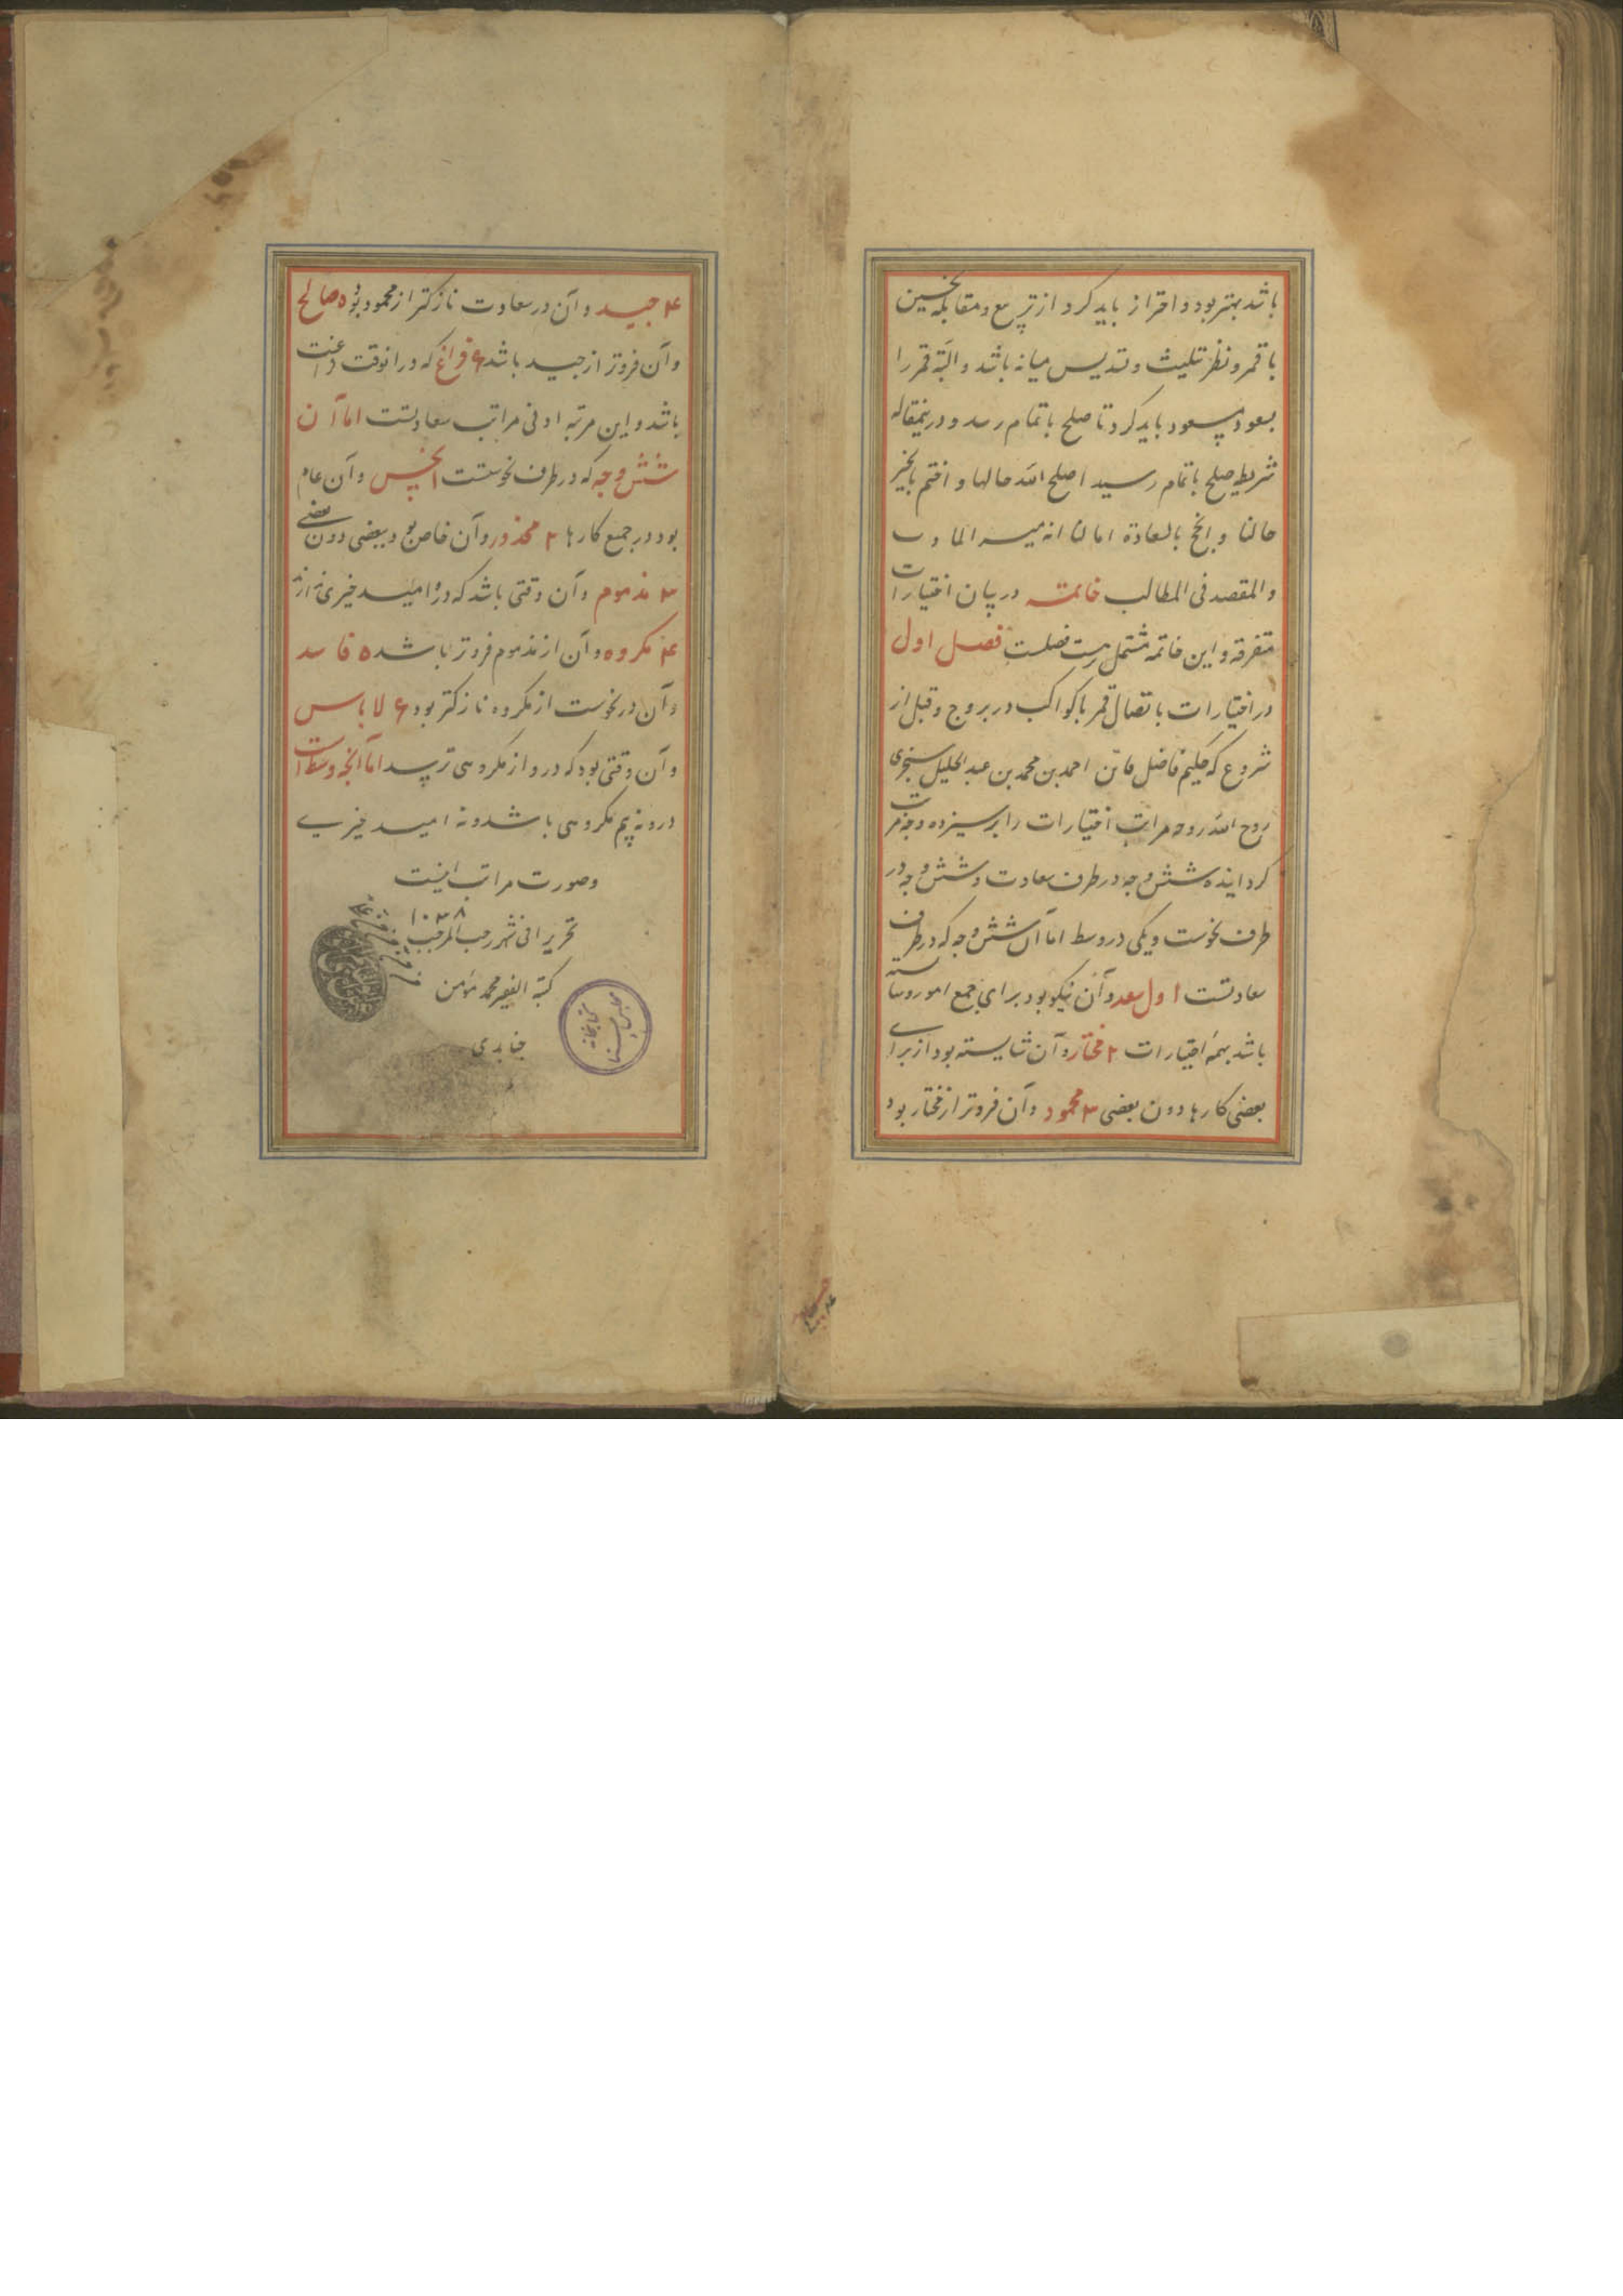 باشد بهتر بود و احتراز باید کرد از تربیع و مقابلهٔ نحسین
با قمر و نظر تثلیث و تسدیس میانه باشد و البته قمر را
بسعود مسعود باید کرد تا صلح باتمام رسد و درینمقاله
شریط صلح باتمام رسید اصلح الله حالها و اختم بالخیر
حالنا و انجح بالسعادة امالنا انه میسر المآرب
و المقصد فی المطالب خاتمه در بیان اختیارات
متفرقه و این خاتمه مشتمل بیست فصلست فصل اول
در اختیارات باتصال قمر با کواکب در بروج و قبل از
شروع که حکیم فاضل احمد بن محمد بن عبد الجلیل سنجری
روح الله روحه مراتب اختیارات را بر سیزده وجه مرتب
کردانیده شش وجه در طرف سعادت و شش وجه در
طرف نحوست و یکی در وسط اما آن شش وجه که در طرف
سعادتست اول سعد و آن نیکو بود برای جمع امور و شایسته
باشد بهمه اختیارات ۲ مختار و آن شایسته بود از برای
بعضی کارها دون بعضی ۳ محمود و آن فروتر از مختار بود
۴ جید و آن در سعادت نازکتر از محمود بود ۵ صالح
و آن فروتر از جید باشد ۶ فراغ که در انوقت
باشد و این مرتبه ادنی مراتب سعادتست اما آن
شش وجه که در طرف نحوستست ا نحس و آن عام
بود در جمیع کارها ۲ محذور و آن خاص بود ببعضی دون بعضی
۳ مذموم و آن وقتی باشد که درو امید خیری ندارند
۴ مکروه و آن از مذموم فروتر باشد ۵ فاسد
و آن در نحوست از مکروه نازکتر بود ۶ لا باس
و آن وقتی بود که درو از مکروهی ترسد اما آنچه وسط است
درو نه بیم مکروهی باشد و نه امید خیری
و صورت مراتب اینست
تحریرا فی شهر رجب المرجب ۱۰۳۸
کتبه الفقیر محمد مؤمن
جنابدی